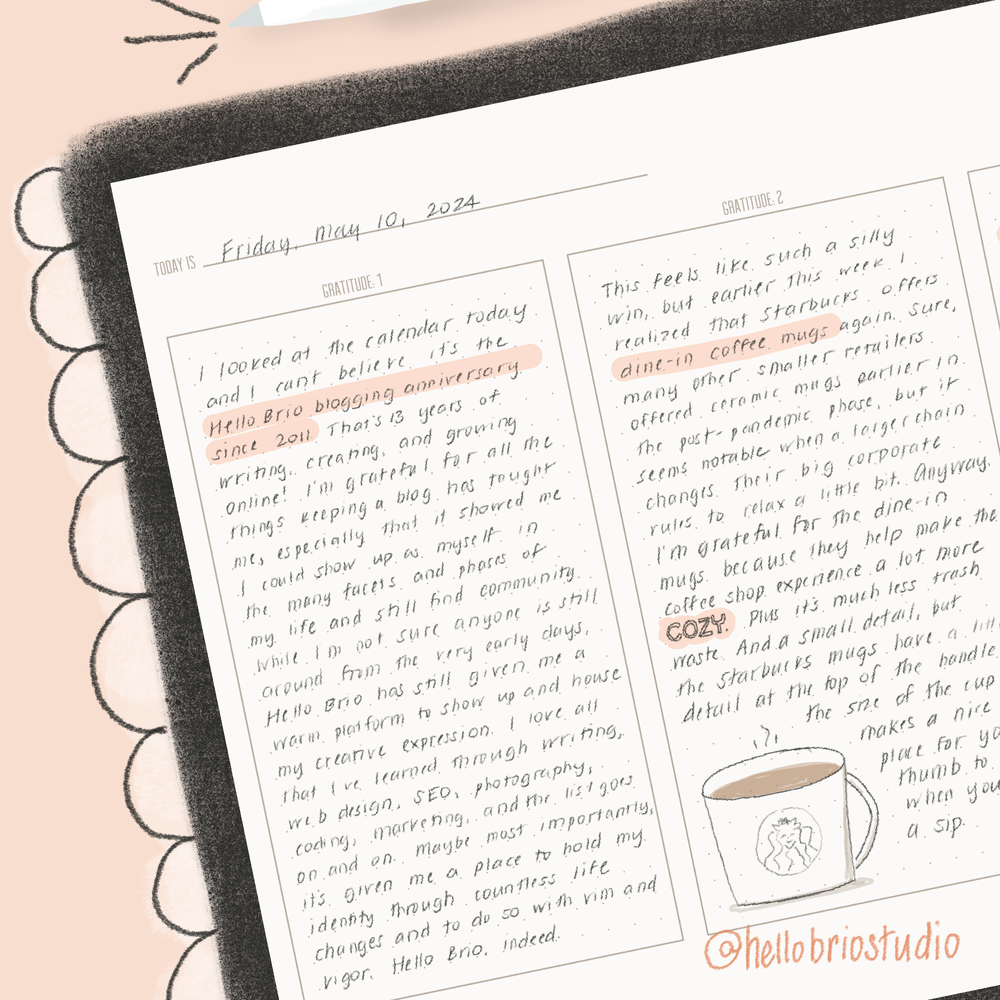 TODAY IS Friday, may 10, 2024
GRATITUDE: 1
I looked at the calendar today
and I can't believe it's the
Hello Brio blogging anniversary
since 2011. That's 13 years of
writing, creating, and growing
online! I'm grateful for all the
things keeping a blog has taught
me, especially that it showed me
I could show up as myself in
the many facets and phases of
my life and still find community.
While I'm not sure anyone is still
around from the very early days,
Hello Brio has still given me a
warm platform to show up and house
my creative expression. I love all
that I've learned through writing,
web design, SEO, photography,
coding, marketing, and the list goes
on and on. Maybe most importantly,
it's given me a place to hold my
identity through countless life
changes and to do so with vim and
vigor. Hello Brio, indeed.
GRATITUDE: 2
This feels like such a silly
win, but earlier this week I
realized that Starbucks offers
dine-in coffee mugs again. Sure,
many other smaller retailers
offered ceramic mugs earlier in
the post-pandemic phase, but it
seems notable when a larger chain
changes their big corporate
rules to relax a little bit. Anyway,
I'm grateful for the dine-in
mugs because they help make the
coffee shop experience a lot more
COZY. Plus it's much less trash
waste. And a small detail, but
the Starbucks mugs have a
detail at the top of the handle
the size of the cup
makes a nice
place for
thumb to
when
a sip.
@hellobriostudio